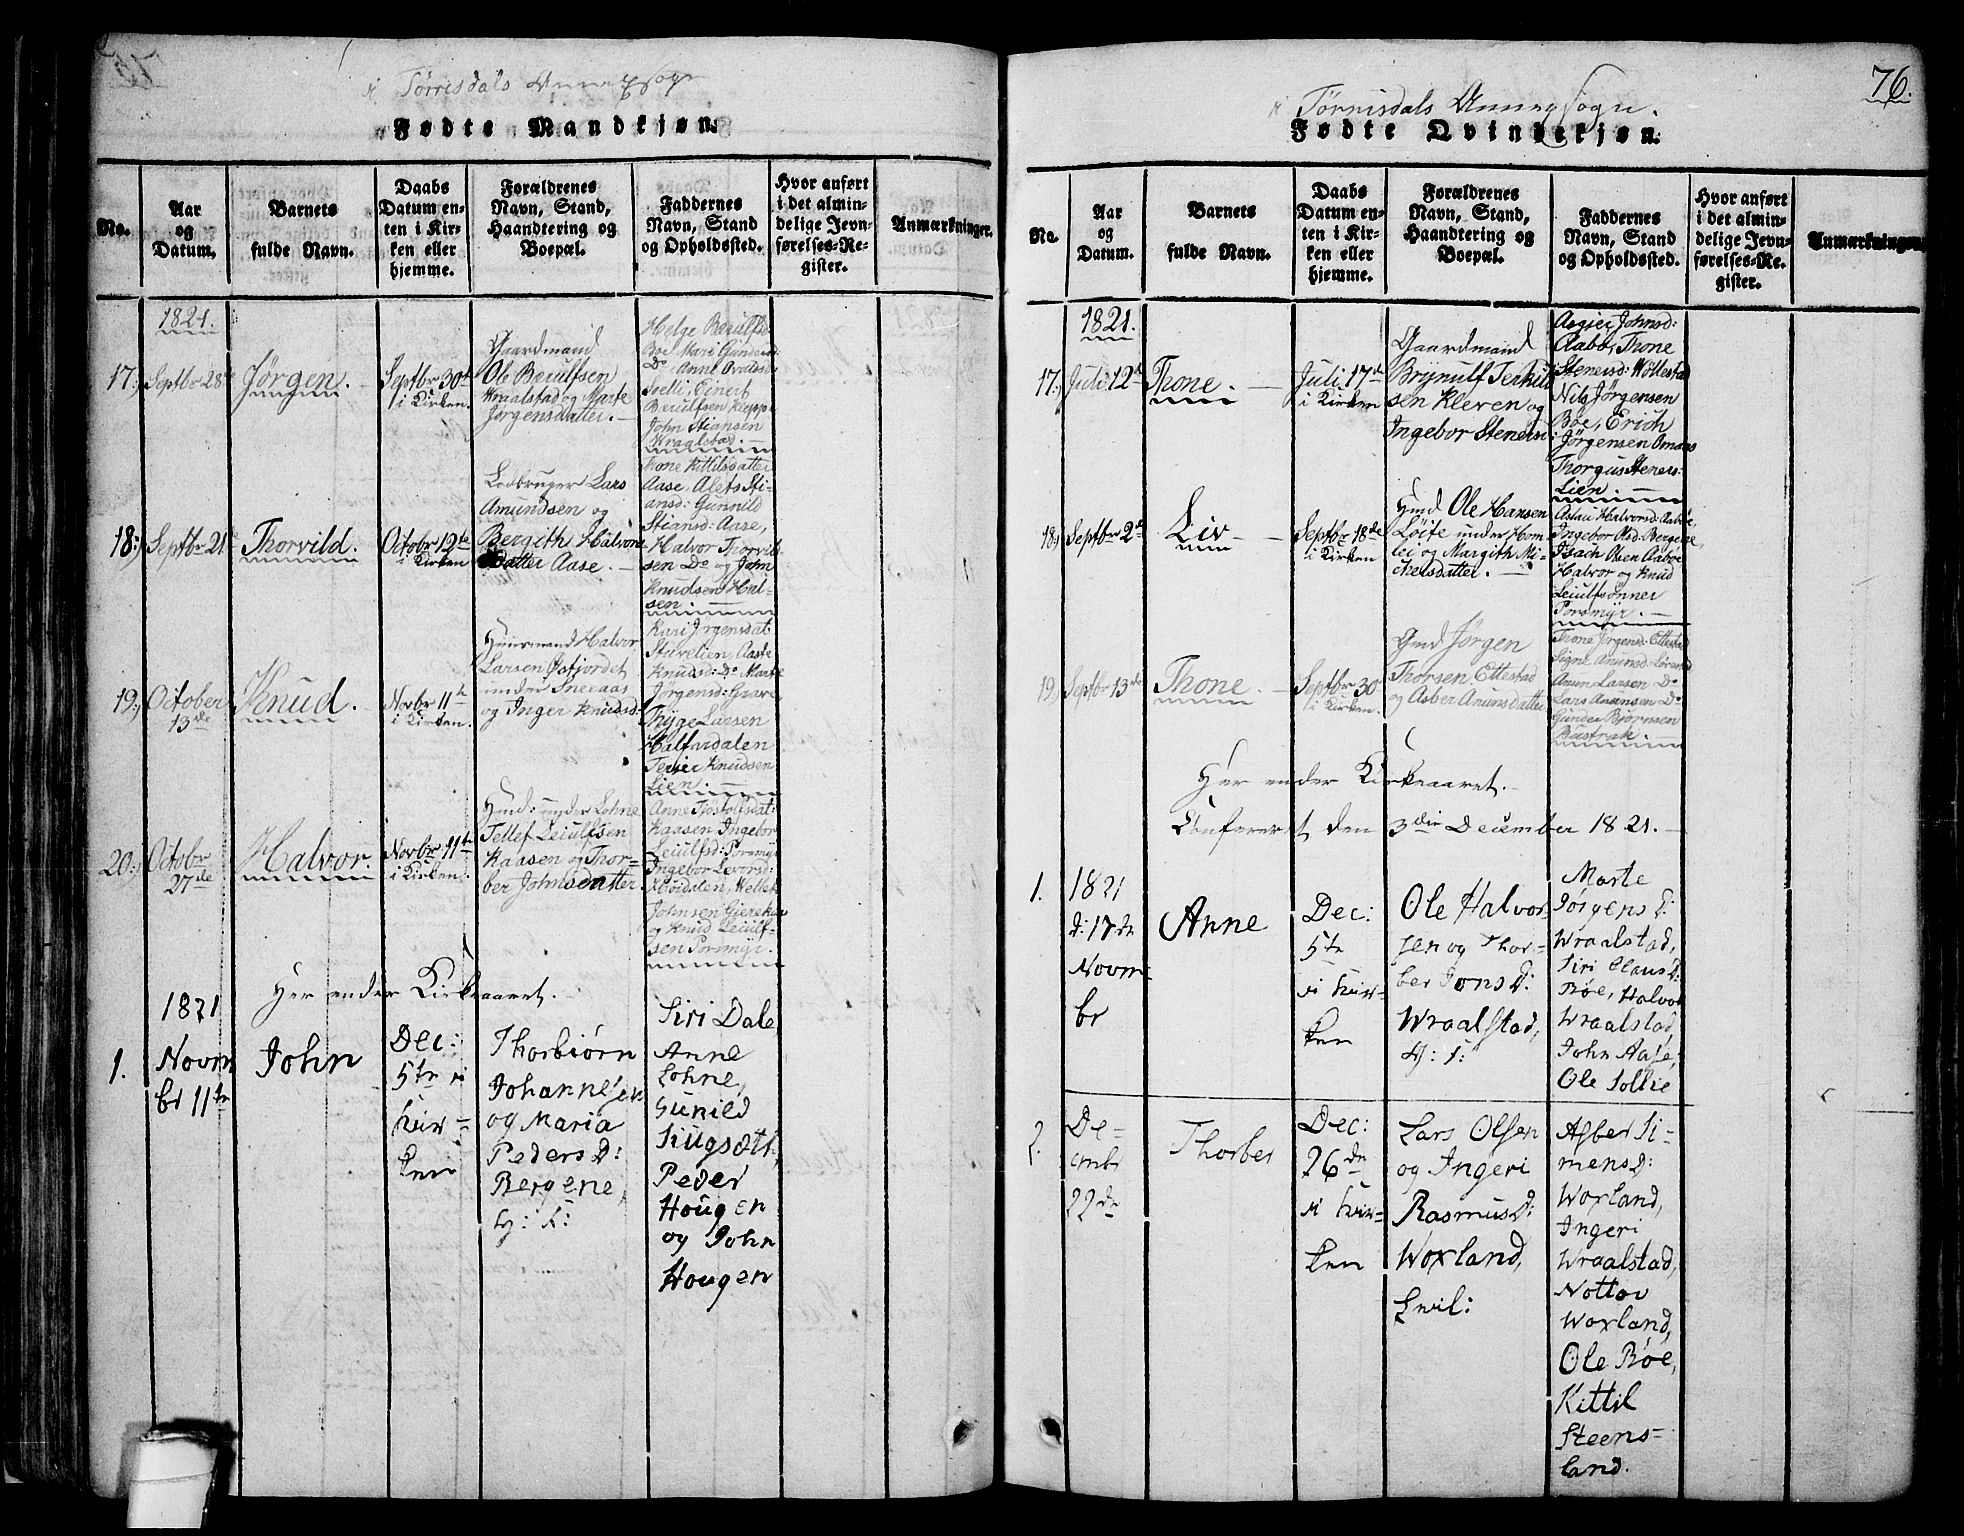 i Tørrisdals Annex Sogn
Fødte Mandkjøn.
No.
Aar
og
Datum.
Barnets
fulde Navn.
Daabs
Datum en-
ten i Kir-
ken eller
hjemme.
Forældrenes
Navn, Stand,
Haandtering og
Boepæl.
Faddernes
Navn, Stand
og Opholdssted.
Hvor anført
i det almin-
delige Jevn-
førelses-Re-
gister.
Anmærkninger.
1821.
17.)
Septbr 28de
Jørgen.
Septbr 30te
i Kirken.
Gaardmand
Ole Berulfsen
Wraalstad og Marte
Jørgensdatter.
Helge Berulfsd:
Boe, Mari Gunders:
Do Anne
Solli, Einert
Berulfsen
John Stiansen
Wraalstad.
18.)
Septbr 21de
Thorvild.
Octobr 12te
i Kirken
Lodbruger Lars
Amundsen og
Bergith Halvors
datter Aase.
Thone Kittilsdatter
Aase, Alets Sti-
ansd: Gunnild
Stiansd: Aase,
Halvor Thorvild-
sen Do og John
Knudsen Hal-
sen.
19.)
October
13de
Knud.
Novbr 11te
i Kirken.
Huusmand Halvor
Larsen Østjordet
under Sneaas
og Inger Knudsd:
Kari Jrgensdat:
Sturelien, Aaste
Knudsd: Do Marte
Jørgensd: Grave
Thyge Larsen
Halfardalen
Terjer Knudsen
Lien.
20.)
Octobr
27de
Halvor.
Novbr 11te
i Kirken.
Huusd: under Lohne
Tellef Leiulfsen
Kaasen og Thor-
ber Johnsdatter.
Anne Tjøstolfsdat:
Kaasen Ingebor
Leiulfsd: Porsmyr
Ingebor Levorsd:
Høidalen, Wetle
Johnsen Gierekaas
og Knud Leiulf-
sen Porsmyr.
Her ender Kirkeaaret.
1.
1821
Novm
br 11te
John
Dec:
5te i
Kir-
ken
Thorbiørn
Johannesen
og Maria
Peders D:
Bergene,
Siri Dale
Anne
Lohne,
Gunild
Siugsæt,
Peder
Hougen
og John
Hougen
76.
i Tørrisdals Annex Sogn.
Fødte Qvindekjøn.
No.
Aar
og
Datum.
Barnets
fulde Navn.
Daabs
Datum en-
ten i Kir-
ken eller
hjemme.
Forældrenes
Navn, Stand,
Haandtering og
Boepæl.
Faddernes
Navn, Stand
og Opholdssted.
Hvor anført
i det almin-
delige Jevn-
førelses-Re-
gister.
Anmærkninger.
1821.
17.)
Juli 12te
Thone.
Juli 17de
i Kirken
Gaardmand
Brynulf Terkild
sen Kleven og
Ingebor Stenersd:
Asgier Johnsd:
Aabø, Thone
Stenersd: Wollestad
Nils Jørgensen
Bøe, Erich
Jørgensen Omaas
Thorgus Steners-
Lien.
18.)
Septbr 2de
Liv
Septbr 18de
i Kirken
Hmd Ole Hansen
Løite under Hom
lei og Margith Mi-
chelsdatter.
Aslau Halvorsd: Aabøe,
Ingebor Asd: Bergene,
Isach Olsen Aabøe
Halvor og Knud
Leiulfsønner
Porsmyr.
19.)
Septbr 13de
Thone.
Septbr 30te
i Kirken.
Gmd Jørgen
Thorsen Ettestad
og Asber Anunsdatter
Thone Jrgensd: Ettestad
Signe Anunsd:
Anun Larsen Do
Lars Anunsen Do
Gunder Bjørnsen
Bustrak.
Her ender Kirkeaaret.
Confereret den 3die December 1821.
1.
1821
d: 17de
Novm
br
Anne
Dec:
5te
i Kir-
ken
Ole Halvor-
sen og Thor-
ber Jons D:
Wraalstad,
Marte
Jørgens D:
Wraalstad,
Siri Claus D:
Bøe, Halvor
Wraalstad,
John Aase
Ole Sollie
2.
De-
cmbr
22de
Thorber
Dec:
26de
i Kir-
ken
Lars Olsen
og Ingeri
Rasmus D:
Woxland,
Asber Si-
mens D:
Woxland,
Ingeri
Wraalstad,
Nottov
Woxland,
Ole Bøe,
Kittil
Steens-
land.